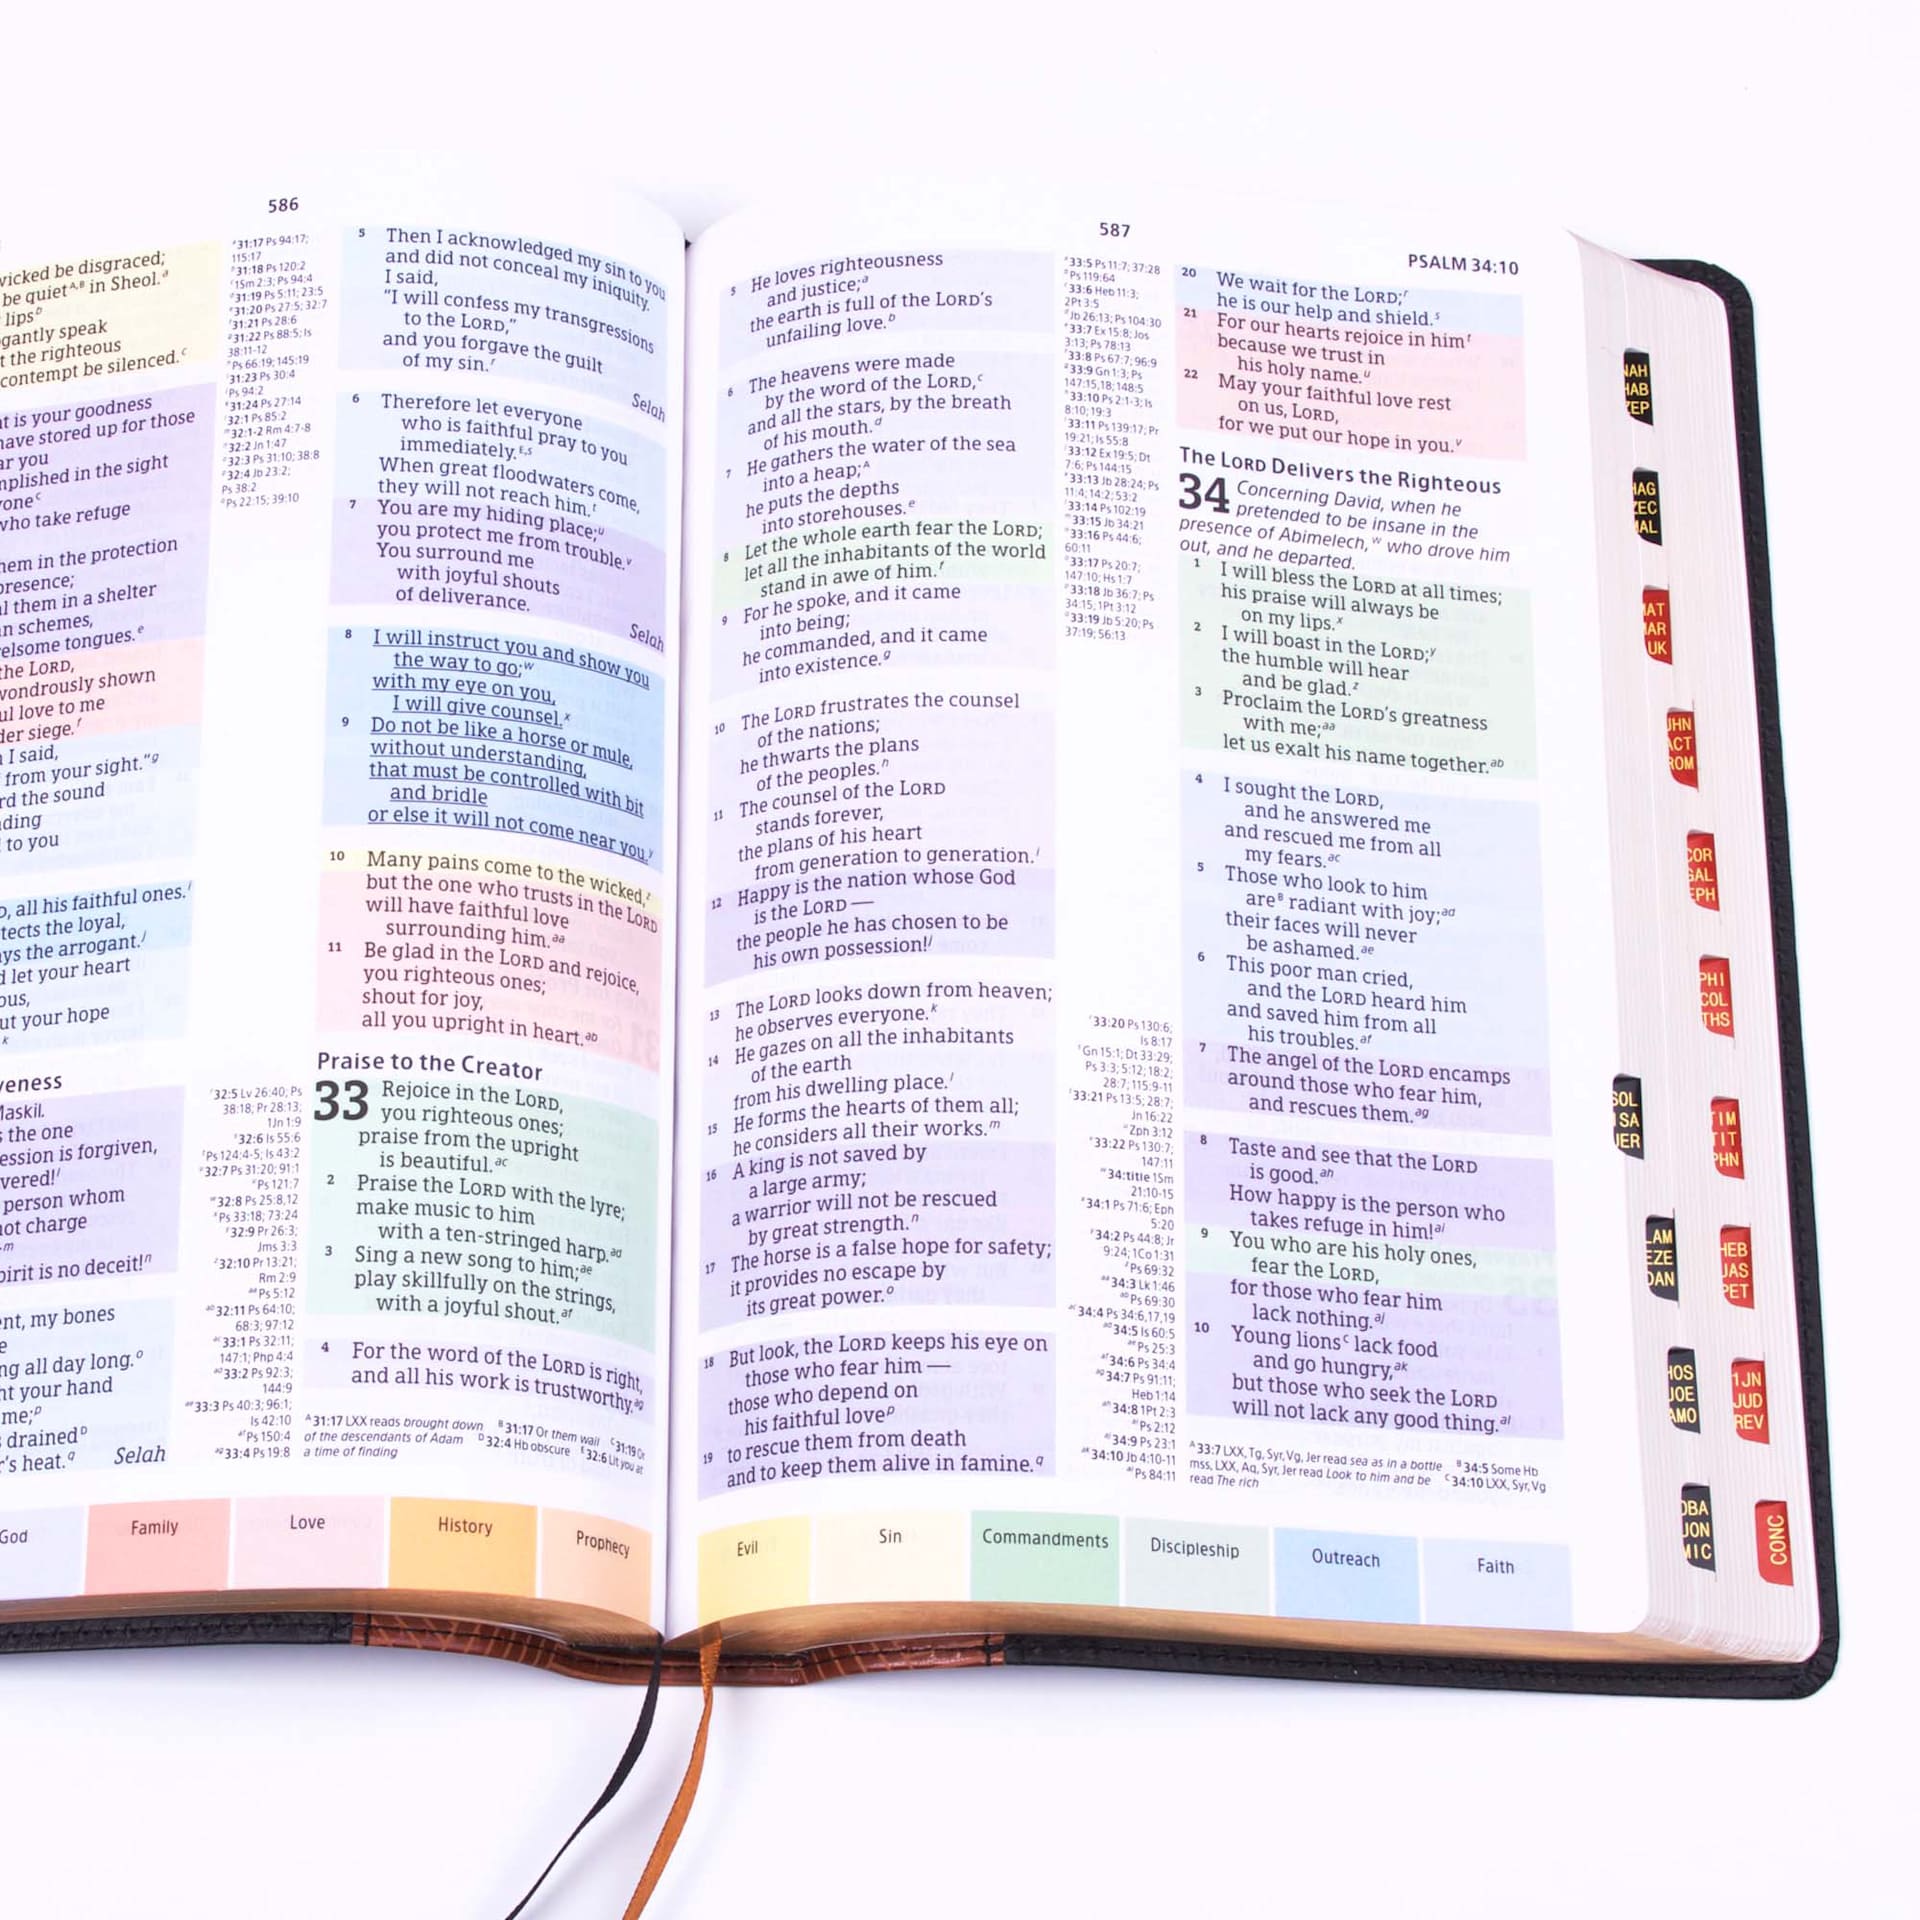 586
wicked be disgraced;
be quietᴬ,ᴮ in Sheol.ᵃ
lipsᵇ
speak
t the righteous
contempt be silenced.ᶜ
is your goodness
have stored up for those
you
in the sight
who take refuge
them in the protection
presence;
them in a shelter
schemes,
tongues.ᵉ
the LORD,
wondrously shown
love to me
siege.ᶠ
I said,
from your sight.”ᵍ
the sound
to you
all his faithful ones.ⁱ
the loyal,
the arrogant.ʲ
let your heart
your hope
the one
is forgiven,
person whom
not charge
is no deceit!ⁿ
my bones
all day long.ᵒ
your hand
me;ᵖ
drainedᴰ
heat.ᑫ Selah
31:17 Ps 94:17;
115:17
31:18 Ps 120:2
1Sm 2:3; Ps 94:4
31:19 Ps 5:11; 23:5
31:20 Ps 27:5; 32:7
31:21 Ps 28:6
31:22 Ps 88:5; Is
38:11-12
Ps 66:19; 145:19
31:23 Ps 30:4
Ps 94:2
31:24 Ps 27:14
32:1 Ps 85:2
32:1-2 Rm 4:7-8
32:2 Jn 1:47
32:3 Ps 31:10; 38:8
32:4 Jb 23:2;
Ps 38:2
Ps 22:15; 39:10
32:5 Lv 26:40; Ps
38:18; Pr 28:13;
1Jn 1:9
32:6 Is 55:6
Ps 124:4-5; Is 43:2
32:7 Ps 31:20; 91:1
Ps 121:7
32:8 Ps 25:8,12
Ps 33:18; 73:24
32:9 Pr 26:3;
Jms 3:3
32:10 Pr 13:21;
Rm 2:9
Ps 5:12
32:11 Ps 64:10;
68:3; 97:12
33:1 Ps 32:11;
147:1; Php 4:4
33:2 Ps 92:3;
144:9
33:3 Ps 40:3; 96:1;
Is 42:10
Ps 150:4
33:4 Ps 19:8
5 Then I acknowledged my sin to you
and did not conceal my iniquity.
I said,
“I will confess my transgressions
to the LORD,”
and you forgave the guilt
of my sin.ʳ
Selah
6 Therefore let everyone
who is faithful pray to you
immediately.ᴱ,ˢ
When great floodwaters come,
they will not reach him.ᵗ
7 You are my hiding place;ᵘ
you protect me from trouble.ᵛ
You surround me
with joyful shouts
of deliverance.
Selah
8 I will instruct you and show you
the way to go;ʷ
with my eye on you,
I will give counsel.ˣ
9 Do not be like a horse or mule,
without understanding,
that must be controlled with bit
and bridle
or else it will not come near you.ʸ
10 Many pains come to the wicked,ᶻ
but the one who trusts in the LORD
will have faithful love
surrounding him.ᵃᵃ
11 Be glad in the LORD and rejoice,
you righteous ones;
shout for joy,
all you upright in heart.ᵃᵇ
Praise to the Creator
33 Rejoice in the LORD,
you righteous ones;
praise from the upright
is beautiful.ᵃᶜ
2 Praise the LORD with the lyre;
make music to him
with a ten-stringed harp.ᵃᵈ
3 Sing a new song to him;ᵃᵉ
play skillfully on the strings,
with a joyful shout.ᵃᶠ
4 For the word of the LORD is right,
and all his work is trustworthy.ᵃᵍ
ᴬ31:17 LXX reads brought down ᴮ31:17 Or them wail ᶜ31:19 Or
of the descendants of Adam ᴰ32:4 Hb obscure ᴱ32:6 Lit you at
a time of finding
God
Family
Love
History
Prophecy
587
PSALM 34:10
5 He loves righteousness
and justice;ᵃ
the earth is full of the LORD’s
unfailing love.ᵇ
6 The heavens were made
by the word of the LORD,ᶜ
and all the stars, by the breath
of his mouth.ᵈ
7 He gathers the water of the sea
into a heap;ᴬ
he puts the depths
into storehouses.ᵉ
8 Let the whole earth fear the LORD;
let all the inhabitants of the world
stand in awe of him.ᶠ
9 For he spoke, and it came
into being;
he commanded, and it came
into existence.ᵍ
10 The LORD frustrates the counsel
of the nations;
he thwarts the plans
of the peoples.ʰ
11 The counsel of the LORD
stands forever,
the plans of his heart
from generation to generation.ⁱ
12 Happy is the nation whose God
is the LORD —
the people he has chosen to be
his own possession!ʲ
13 The LORD looks down from heaven;
he observes everyone.ᵏ
14 He gazes on all the inhabitants
of the earth
from his dwelling place.ˡ
15 He forms the hearts of them all;
he considers all their works.ᵐ
16 A king is not saved by
a large army;
a warrior will not be rescued
by great strength.ⁿ
17 The horse is a false hope for safety;
it provides no escape by
its great power.ᵒ
18 But look, the LORD keeps his eye on
those who fear him —
those who depend on
his faithful loveᵖ
19 to rescue them from death
and to keep them alive in famine.ᑫ
33:5 Ps 11:7; 37:28
Ps 119:64
33:6 Heb 11:3;
2Pt 3:5
Jb 26:13; Ps 104:30
33:7 Ex 15:8; Jos
3:13; Ps 78:13
33:8 Ps 67:7; 96:9
33:9 Gn 1:3; Ps
147:15,18; 148:5
33:10 Ps 2:1-3; Is
8:10; 19:3
33:11 Ps 139:17; Pr
19:21; Is 55:8
33:12 Ex 19:5; Dt
7:6; Ps 144:15
33:13 Jb 28:24; Ps
11:4; 14:2; 53:2
33:14 Ps 102:19
33:15 Jb 34:21
33:16 Ps 44:6;
60:11
33:17 Ps 20:7;
147:10; Hs 1:7
33:18 Jb 36:7; Ps
34:15; 1Pt 3:12
33:19 Jb 5:20; Ps
37:19; 56:13
33:20 Ps 130:6;
Is 8:17
Gn 15:1; Dt 33:29;
Ps 3:3; 5:12; 18:2;
28:7; 115:9-11
33:21 Ps 13:5; 28:7;
Jn 16:22
Zph 3:12
33:22 Ps 130:7;
147:11
34:title 1Sm
21:10-15
34:1 Ps 71:6; Eph
5:20
34:2 Ps 44:8; Jr
9:24; 1Co 1:31
Ps 69:32
34:3 Lk 1:46
Ps 69:30
34:4 Ps 34:6,17,19
34:5 Is 60:5
Ps 25:3
34:6 Ps 34:4
34:7 Ps 91:11;
Heb 1:14
34:8 1Pt 2:3
Ps 2:12
34:9 Ps 23:1
34:10 Jb 4:10-11
Ps 84:11
20 We wait for the LORD;ʳ
he is our help and shield.ˢ
21 For our hearts rejoice in himᵗ
because we trust in
his holy name.ᵘ
22 May your faithful love rest
on us, LORD,
for we put our hope in you.ᵛ
The LORD Delivers the Righteous
34 Concerning David, when he
pretended to be insane in the
presence of Abimelech,ʷ who drove him
out, and he departed.
1 I will bless the LORD at all times;
his praise will always be
on my lips.ˣ
2 I will boast in the LORD;ʸ
the humble will hear
and be glad.ᶻ
3 Proclaim the LORD’s greatness
with me;ᵃᵃ
let us exalt his name together.ᵃᵇ
4 I sought the LORD,
and he answered me
and rescued me from all
my fears.ᵃᶜ
5 Those who look to him
areᴮ radiant with joy;ᵃᵈ
their faces will never
be ashamed.ᵃᵉ
6 This poor man cried,
and the LORD heard him
and saved him from all
his troubles.ᵃᶠ
7 The angel of the LORD encamps
around those who fear him,
and rescues them.ᵃᵍ
8 Taste and see that the LORD
is good.ᵃʰ
How happy is the person who
takes refuge in him!ᵃⁱ
9 You who are his holy ones,
fear the LORD,
for those who fear him
lack nothing.ᵃʲ
10 Young lionsᶜ lack food
and go hungry,ᵃᵏ
but those who seek the LORD
will not lack any good thing.ᵃˡ
ᴬ33:7 LXX, Tg, Syr, Vg, Jer read sea as in a bottle ᴮ34:5 Some Hb
mss, LXX, Aq, Syr, Jer read Look to him and be ᶜ34:10 LXX, Syr, Vg
read The rich
Evil
Sin
Commandments
Discipleship
Outreach
Faith
NAH
HAB
ZEP
HAG
ZEC
MAL
MAT
MAR
LUK
JHN
ACT
ROM
COR
GAL
EPH
PHI
COL
THS
SOL
ISA
JER
TIM
TIT
PHN
LAM
EZE
DAN
HEB
JAS
PET
HOS
JOE
AMO
1JN
JUD
REV
OBA
JON
MIC
CONC